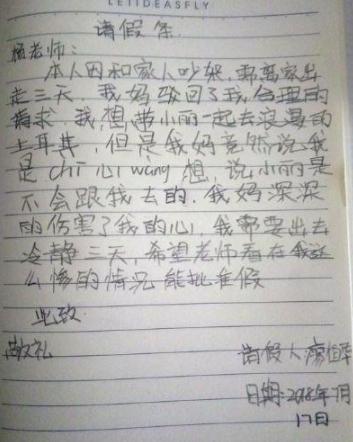 LETIDEASFLY
请假条
杨老师:
本人因和家人吵架,需离家出
走三天,我妈驳回了我合理的
请求,我想带小丽一起去浪漫的
土耳其,但是我妈竟然说我
是chi心wang想,说小丽是
不会跟我去的.我妈深深
的伤害了我的心,我需要出去
冷静三天,希望老师看在我这
么惨的情况能批准假
此致
敬礼
请假人
日期:2018年7月
17日